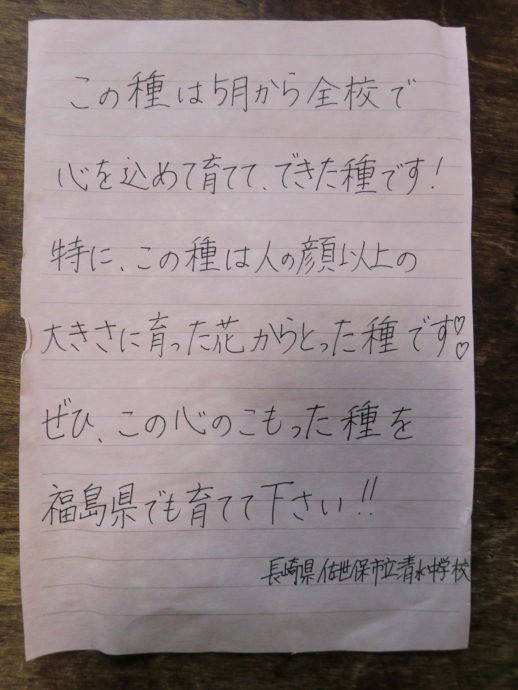 この種は5月から全校で
心を込めて育てて、できた種です!
特に、この種は人の顔以上の
大きさに育った花からとった種です♡♡
ぜひ、この心のこもった種を
福島県でも育てて下さい!!
長崎県佐世保市立清水中学校